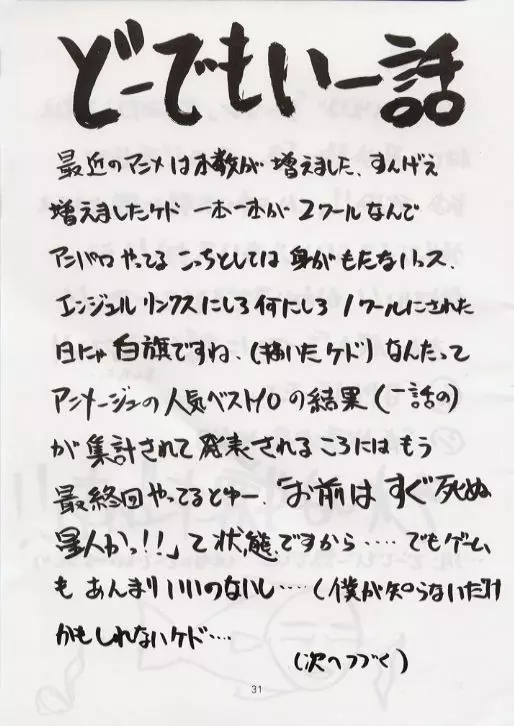 どーでもいー話
最近のアニメは本数が増えました、すんげえ
増えましたケド 一本一本が2クールなんで
アンパロやってる こっちとしては身がもたないっス、
エンジェルリンクスにしろ何にしろ 1クールにされた
日にゃ白旗ですね、(描いたケド) なんたって
アニメージュの人気ベスト10の結果(一話の)
が集計されて発表されるころにはもう
最終回やってるとゆー、「お前はすぐ死ぬ
星人かっ!!」て状態ですから‥‥でもゲーム
も あんまりいいのないし‥‥(僕が知らないだけ
かもしれないケド‥‥
(次へつづく)
31